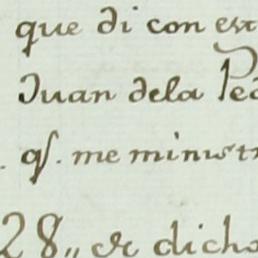 que di con est
Juan dela Ped
. qͥ. me ministr
28,, de dicho